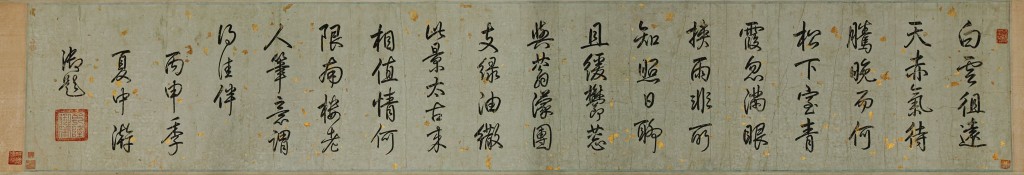 白雲徂遠
天赤氣待
騰晚而何
松下室青
霞忽滿眼
挾雨非所
知照日聊
且緩鬱葱
與蓊濛團
支綠油繖
此景太古來
相值情何
限南樓老
人筆意謂
得佳伴
丙申季
夏中澣
御題